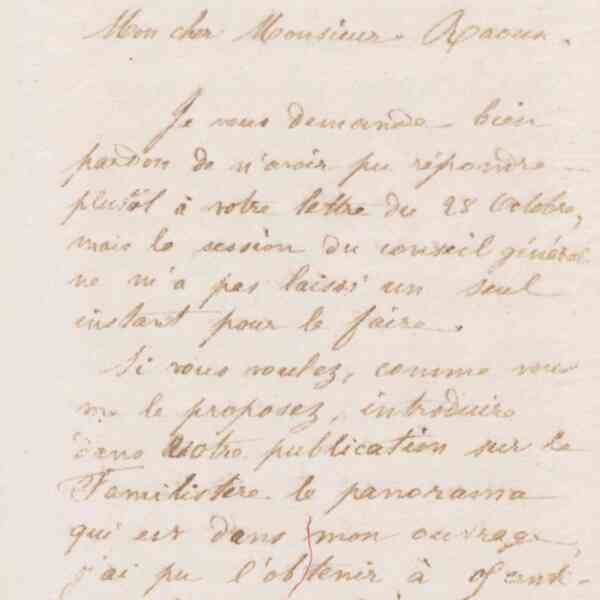 Mon cher Monsieur Raoux.
Je vous demande bien
pardon de n'avoir pu répondre
plustôt à votre lettre du 28 Octobre,
mais la session du conseil général
ne m'a pas laissé un seul
instant pour le faire.
Si vous voulez, comme vous
me le proposez, introduire
dans votre publication sur le
Familistère le panorama
qui est dans mon ouvrage,
j'ai pu l'obtenir à